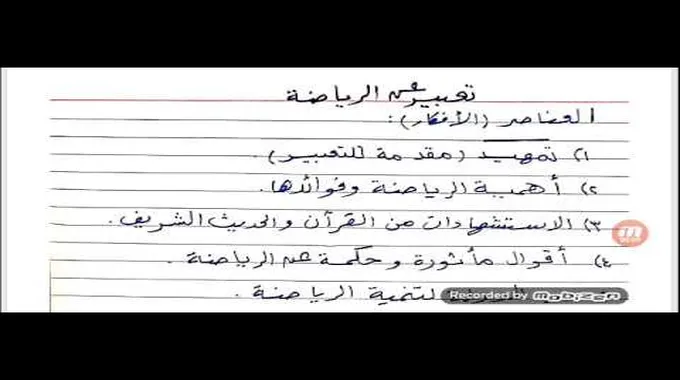 تعبير عن الرياضة
العناصر (الأفكار) :
١) تمهيد (مقدمة للتعبير) .
٢) أهمية الرياضة وفوائدها .
٣) الاستشهادات من القرآن والحديث الشريف .
٤) أقوال مأثورة وحكمة عن الرياضة .
لتنمية الرياضة .
Recorded by Mobizen